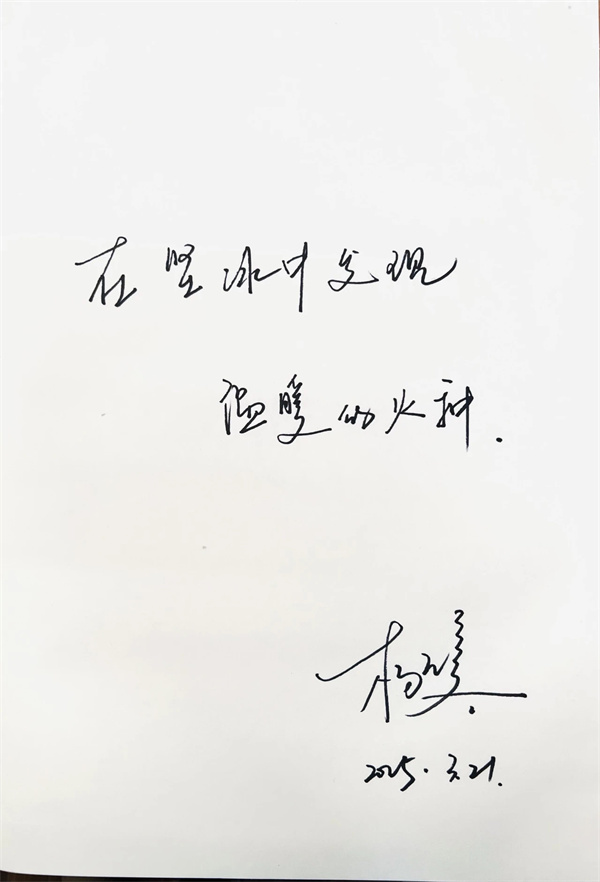 在坚冰中发现
温暖的火种.
杨
2025.3.21.